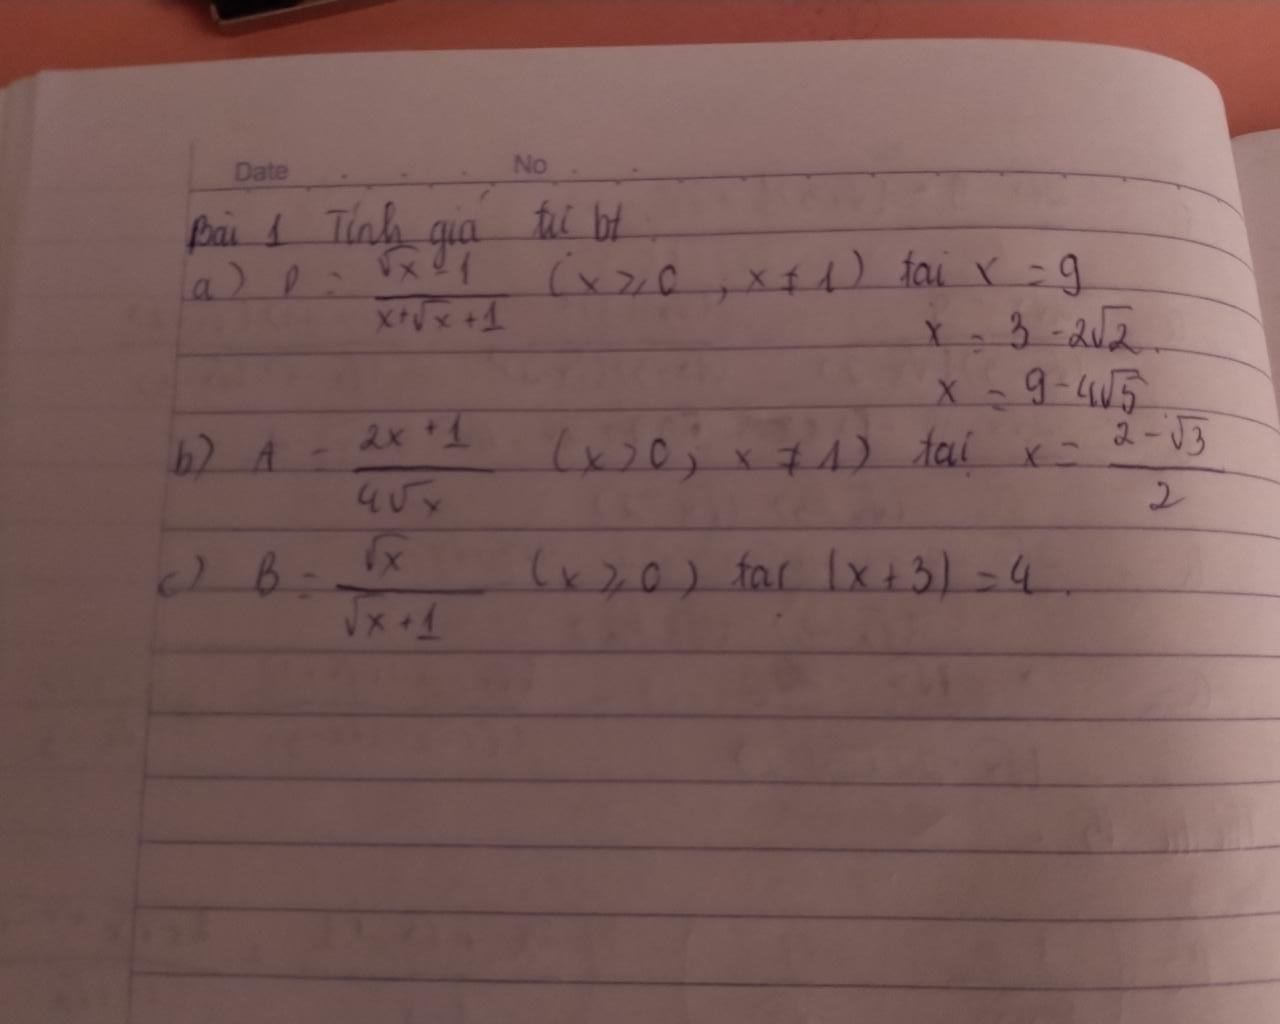 Date No
Bài 1 Tính giá trị bt
a) P = \frac{\sqrt{x}-1}{x+\sqrt{x}+1} (x ≥ 0, x ≠ 1) tại x = 9
x = 3 - 2√2.
x = 9 - 4√5
b) A = \frac{2x+1}{4\sqrt{x}} (x > 0; x ≠ 1) tại x = \frac{2-\sqrt{3}}{2}
c) B = \frac{\sqrt{x}}{\sqrt{x}+1} (x ≥ 0) tại |x+3| = 4.